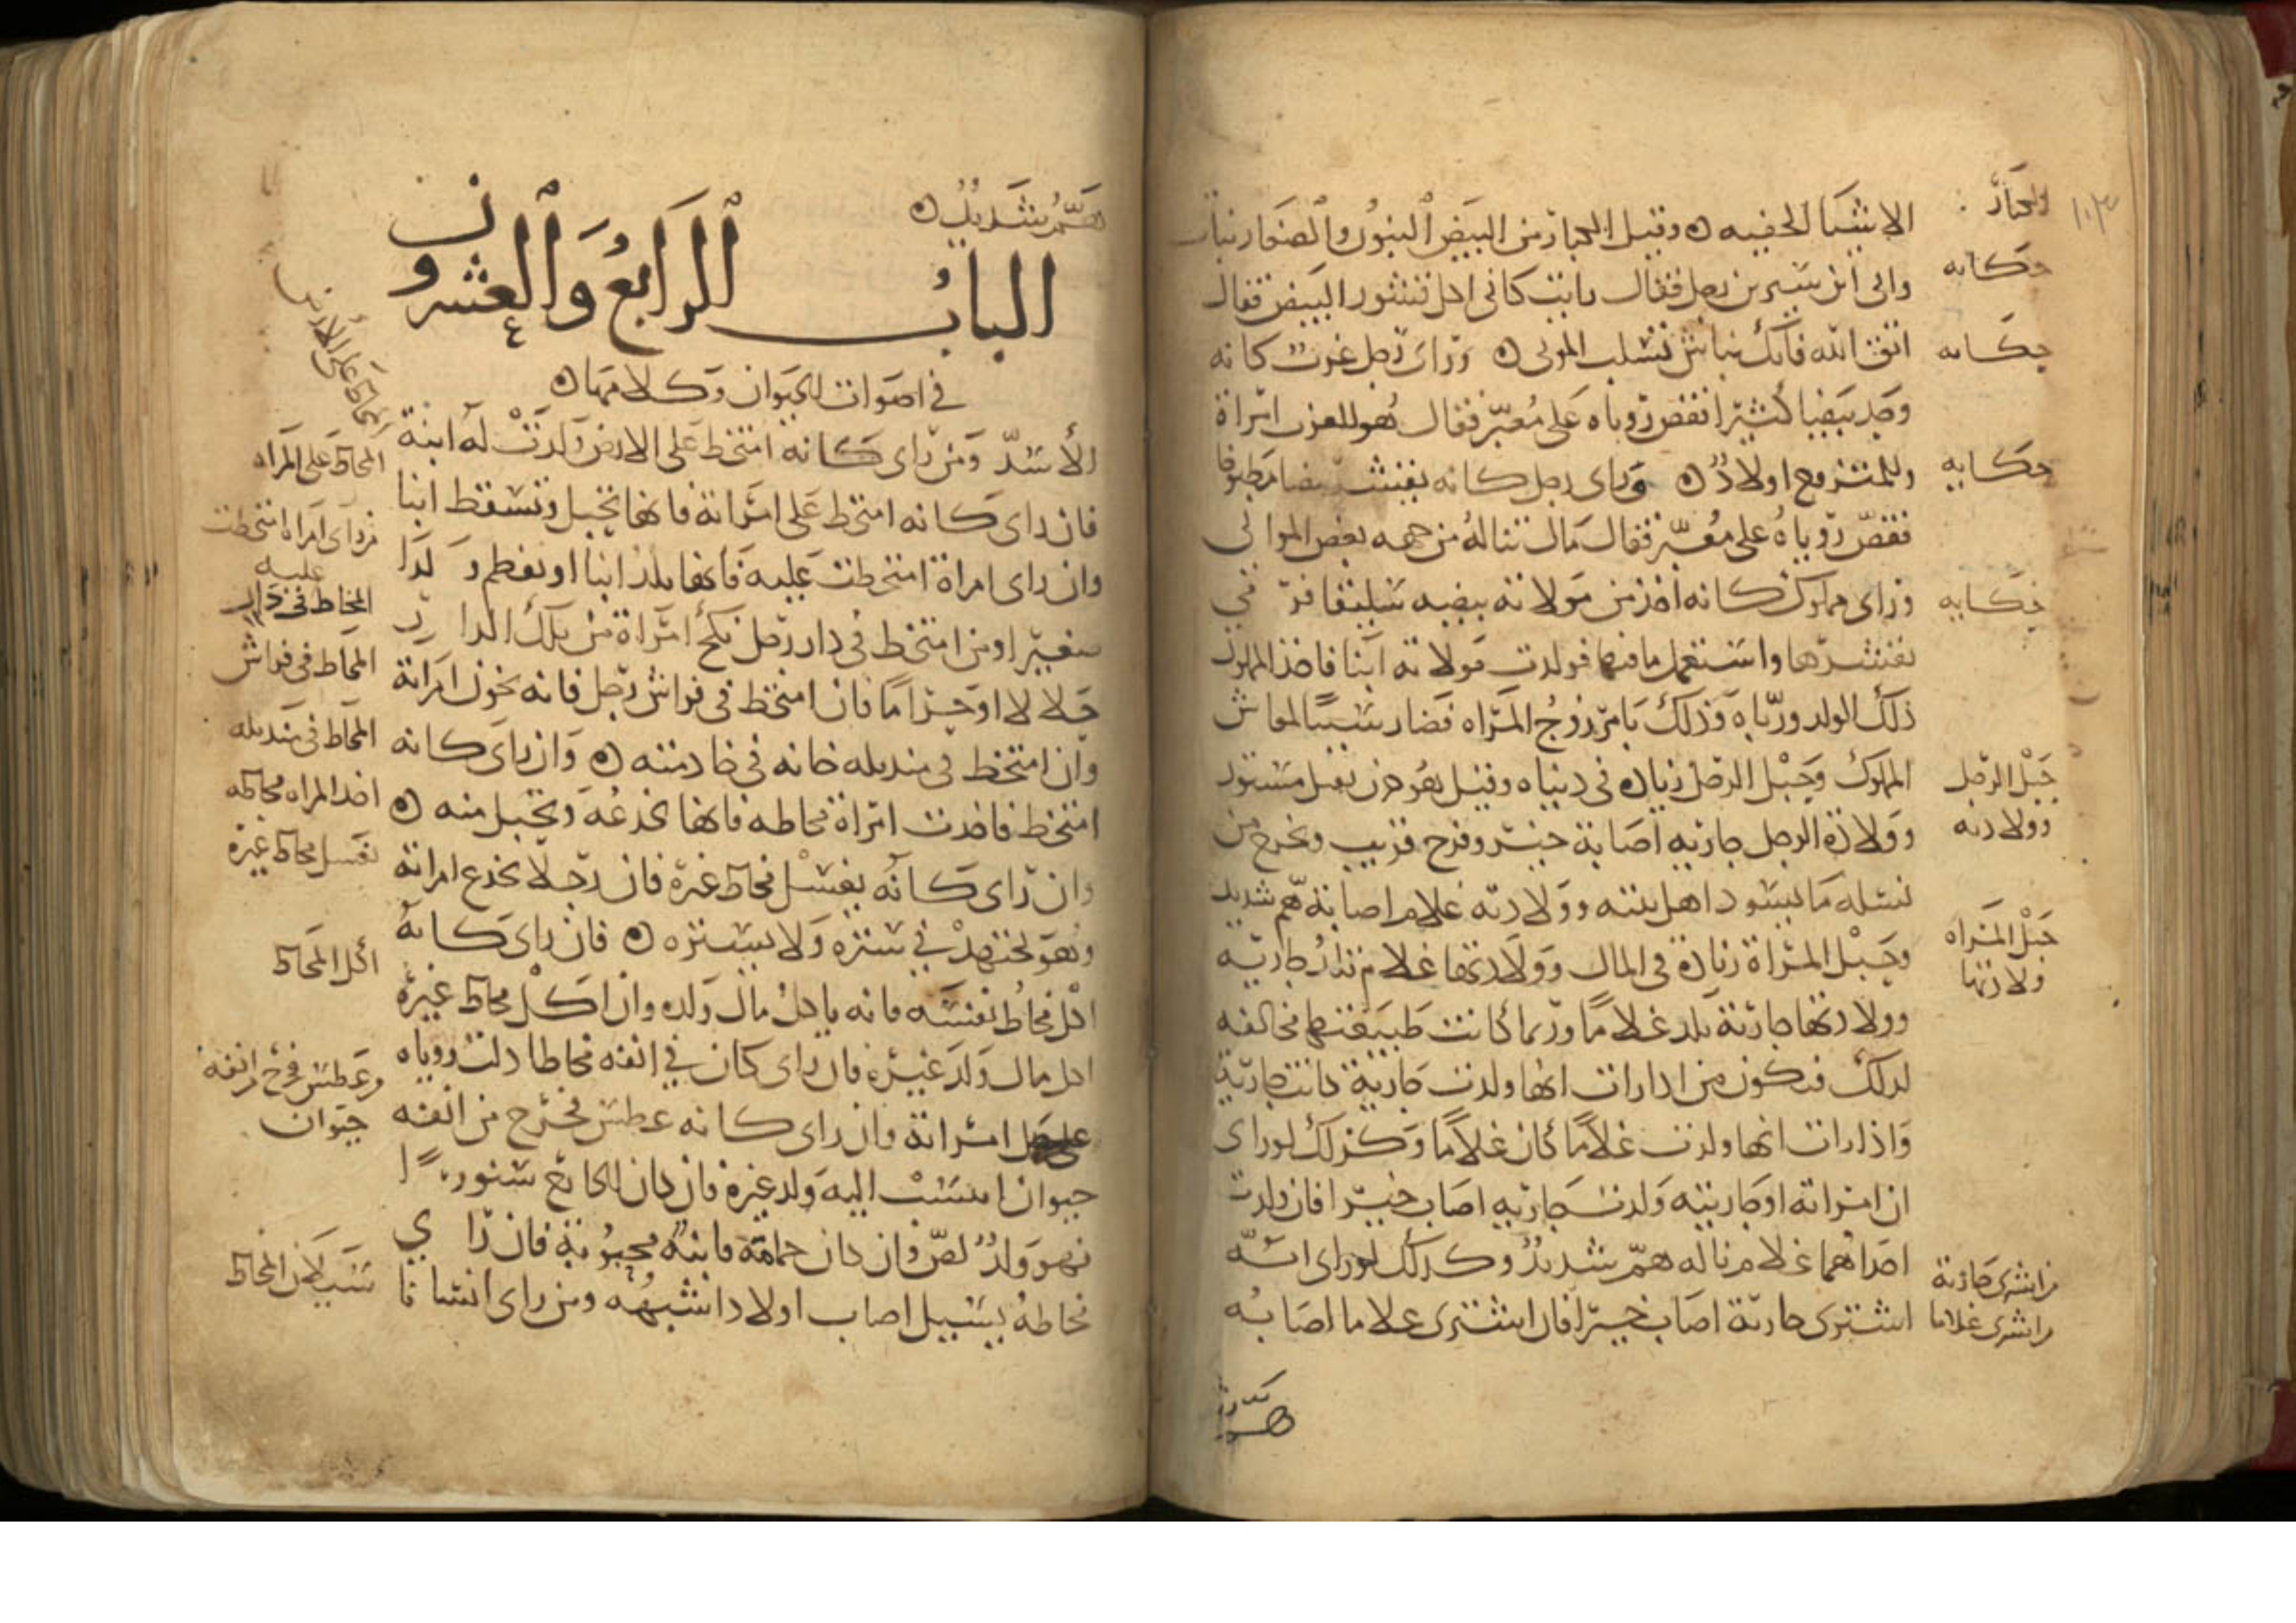 ١٠٣
الاشيا الخفيه ن وقيل الكبار من البيض البنون والصغار بنات
واتى ابن سيرين رجل فقال رايت كاني اكل قشور البيض فقال
اتق الله فانك نباش تسلب الموتى ن وراى رجل عزب كانه
وجد بيضا كثيرا فقص روياه على معبر فقال هو للعزب امراة
وللمتزوج اولاد ن وراى رجل كانه يقشر بيضا مطبوخا
فقص روياه على معبر فقال مال تناله من جهه بعض الموالي
وراى مملوك كانه اخذ من مولاته بيضه سليقا فرمى
بقشرها واستعمل ما فيها فولدت مولاته ابنا فاخذ المملوك
ذلك الولد ورباه وذلك بامر زوج المراه فصار سببا لمعاش
المملوك وحبل الرجل زياده في دنياه وقيل هو حزن يعمل مستور
وولادة الرجل جاريه اصابة خير وفرج قريب ويخرج من
نسله ما يسود اهل بيته وولادته غلام اصابة هم شديد
وحبل المراة زيادة في المال وولادتها غلام تلد جاريه
وولادتها جارية تلد غلاما وربما كانت طبيعتها مخالفه
لذلك فيكون من اذا رات انها ولدت جارية كانت جارية
واذا رات انها ولدت غلاما كان غلاما وكذلك لو راى
ان امراته او جاريته ولدت جاريه اصاب خيرا فان ولدت
احداهما غلام ناله هم شديد وكذلك لو راى انه
اشترى جارية اصاب خيرا فان اشترى غلاما اصابه
حكايه
حكايه
حكايه
حكايه
حبل الرجل
وولادته
حبل المراه
ولادتها
من اشترى جارية
من اشترى غلاما
هم شديد ن
الباب الرابع والعشرون
في اصوات الحيوان وكلامها ن
الأسد ومن راى كانه امتخط على الارض ولدت له ابنة
فان راى كانه امتخط على امراته فانها تحبل وتسقط ابنا
وان راى امراة امتخطت عليه فانها تلد ابنا او تفطم ولدا
صغيرا ومن امتخط في دار رجل نكح امراة من تلك الدار
حلالا او حراما فان امتخط في فراش رجل فانه يخون امراته
وان امتخط في منديله خانه في خادمته ن وان راى كانه
امتخط فاخذت امراة مخاطه فانها تخدعه وتحبل منه ن
وان راى كانه يغسل مخاط غيره فان رجلا يخدع امراته
وهو يجتهد في ستره ولا يستتره ن فان راى كانه
اكل مخاط نفسه فانه ياكل مال ولده وان اكل مخاط غيره
اكل مال ولد غيره فان راى كان في انفه مخاطا دلت روياه
على حبل امراته وان راى كانه عطس فخرج من انفه
حيوان انتسب اليه ولد غيره فان كان الخارج سنورا
فهو ولد لص وان كان حمامة فابنه محبوبة فان راى
مخاطه يسيل اصاب اولادا شبهه ومن راى انسانا
المخاط على الارض
المخاط على المراه
من راى امراه امتخطت
عليه
المخاط في دار
المخاط في فراش
المخاط في منديله
اخذ المراه مخاطه
يغسل مخاط غيره
اكل المخاط
وعطس فخرج من انفه
حيوان
سيلان المخاط